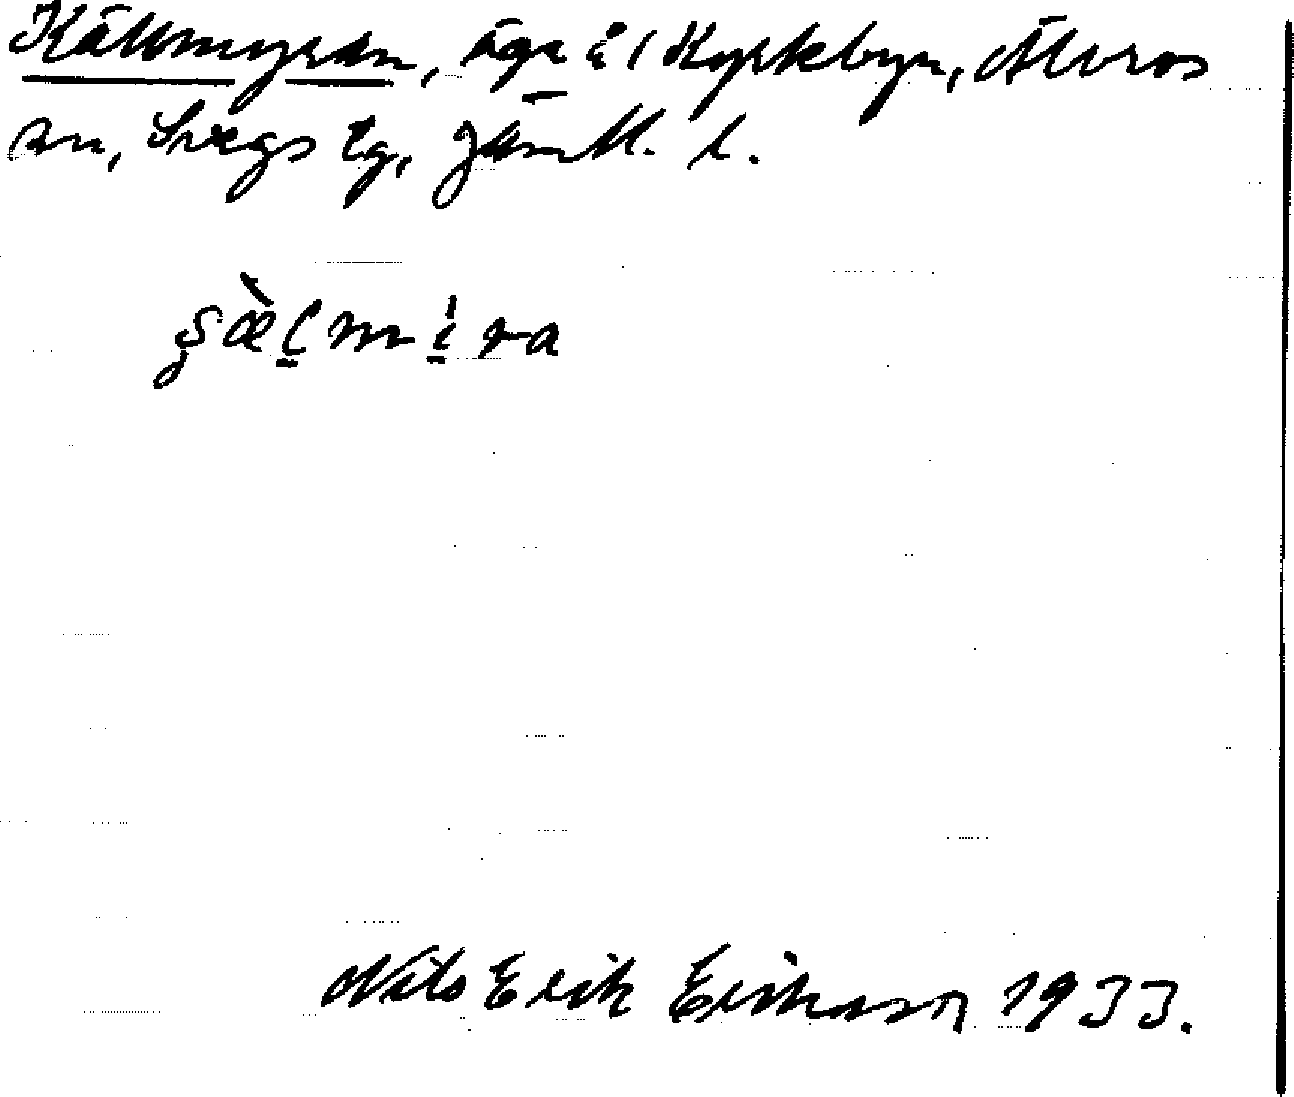 Källmyran, äga i Kyrkbyn, Älvros
sn, Svegs tg, Jämtl. l.
ʂæ̀l̠mi̠ra
Nils Erik Erikson 1933.